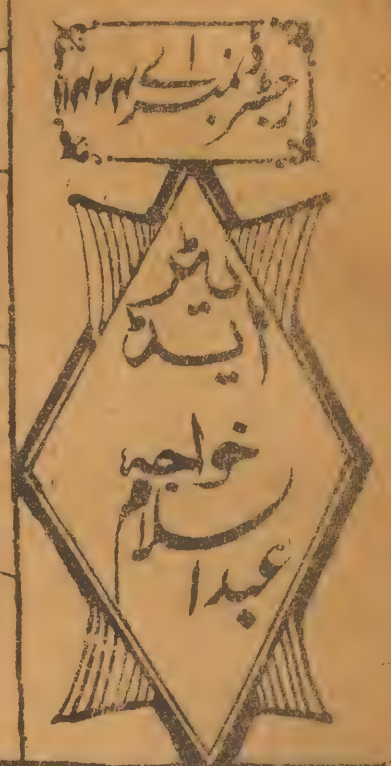 رجسٹرڈ نمبر اے ۱۱۴۲۴
ایڈیٹر
خواجہ
عبدالسلام